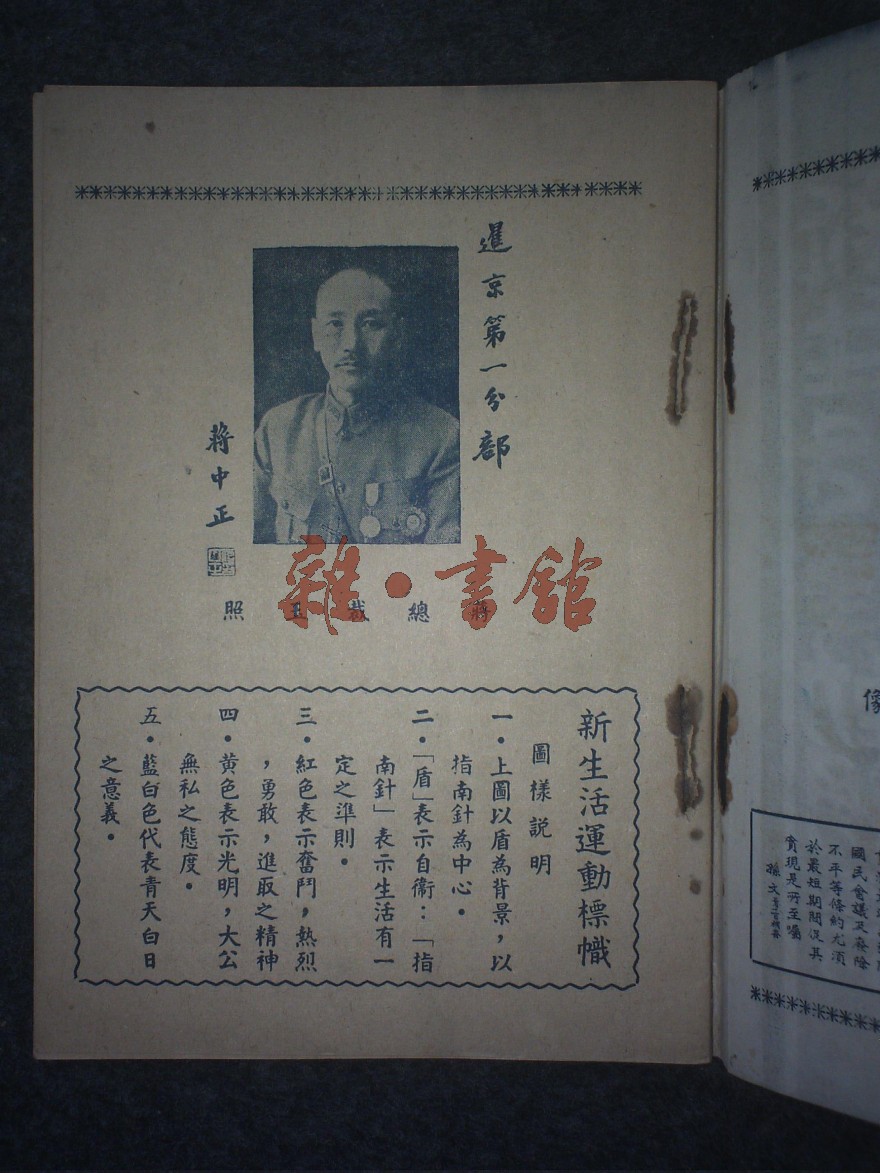 像
國民會議及廢除
不平等條約尤須
於最短期間促其
實現是所至囑
孫文
暹京第一分部
蔣中正
蔣總裁玉照
雜·書館
新生活運動標幟
圖樣說明
一·上圖以盾為背景，以
指南針為中心。
二·「盾」表示自衞：「指
南針」表示生活有一
定之準則。
三·紅色表示奮鬥，熱烈
，勇敢，進取之精神
四·黄色表示光明，大公
無私之態度。
五·藍白色代表青天白日
之意義。